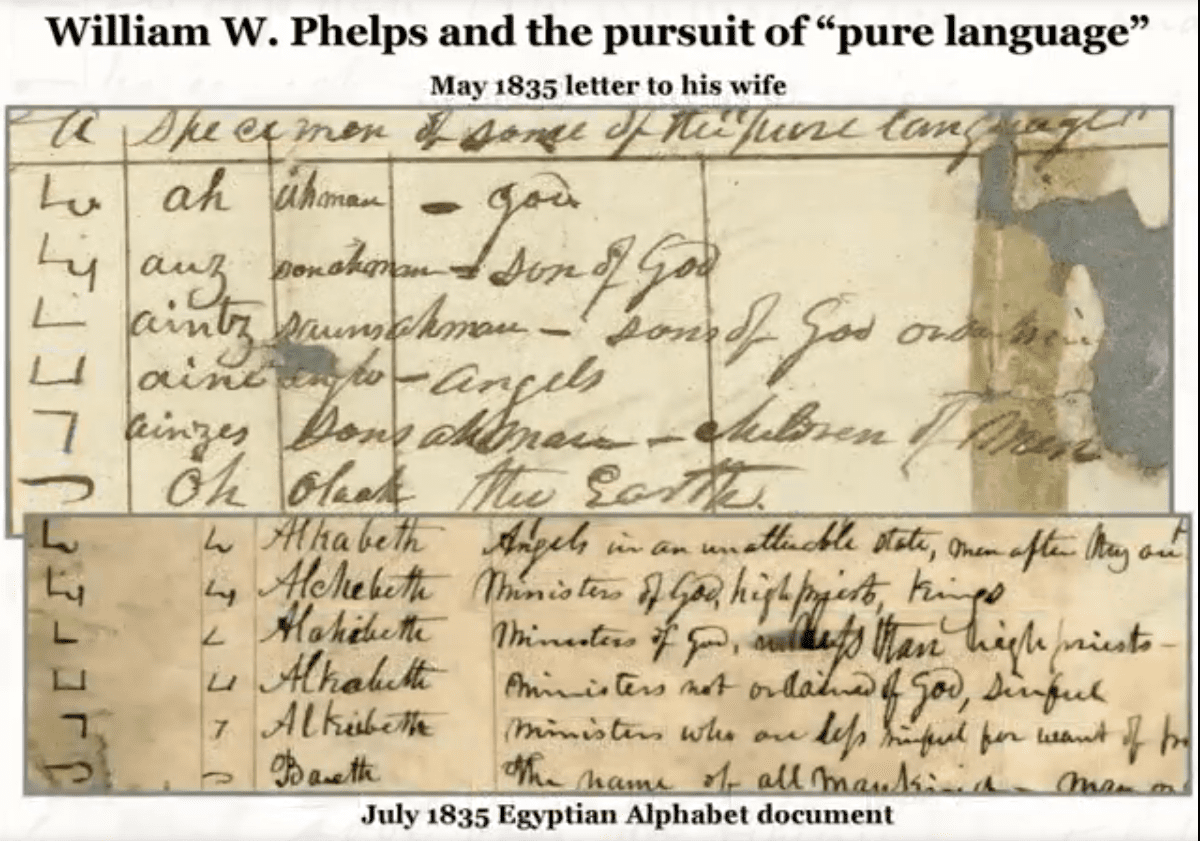 William W. Phelps and the pursuit of “pure language”
May 1835 letter to his wife
A Specimen of some of the "pure language"
ah ahman - god
auz sonahman - son of God
aintz saunsahman - sons of God
aine anglo - angels
ainzes sonsahman - children of men
Oh olaah the Earth.
Alkabeth Angels in an unalterable state, men after they are
Alchebeth Ministers of God, high priests, kings
Alchibeth Ministers of God, less than high priests -
Alkabeth Ministers not ordained of God, sinful
Alkibeth Ministers who are less sinful for want of
Baeth The name of all Mankind - man or
July 1835 Egyptian Alphabet document